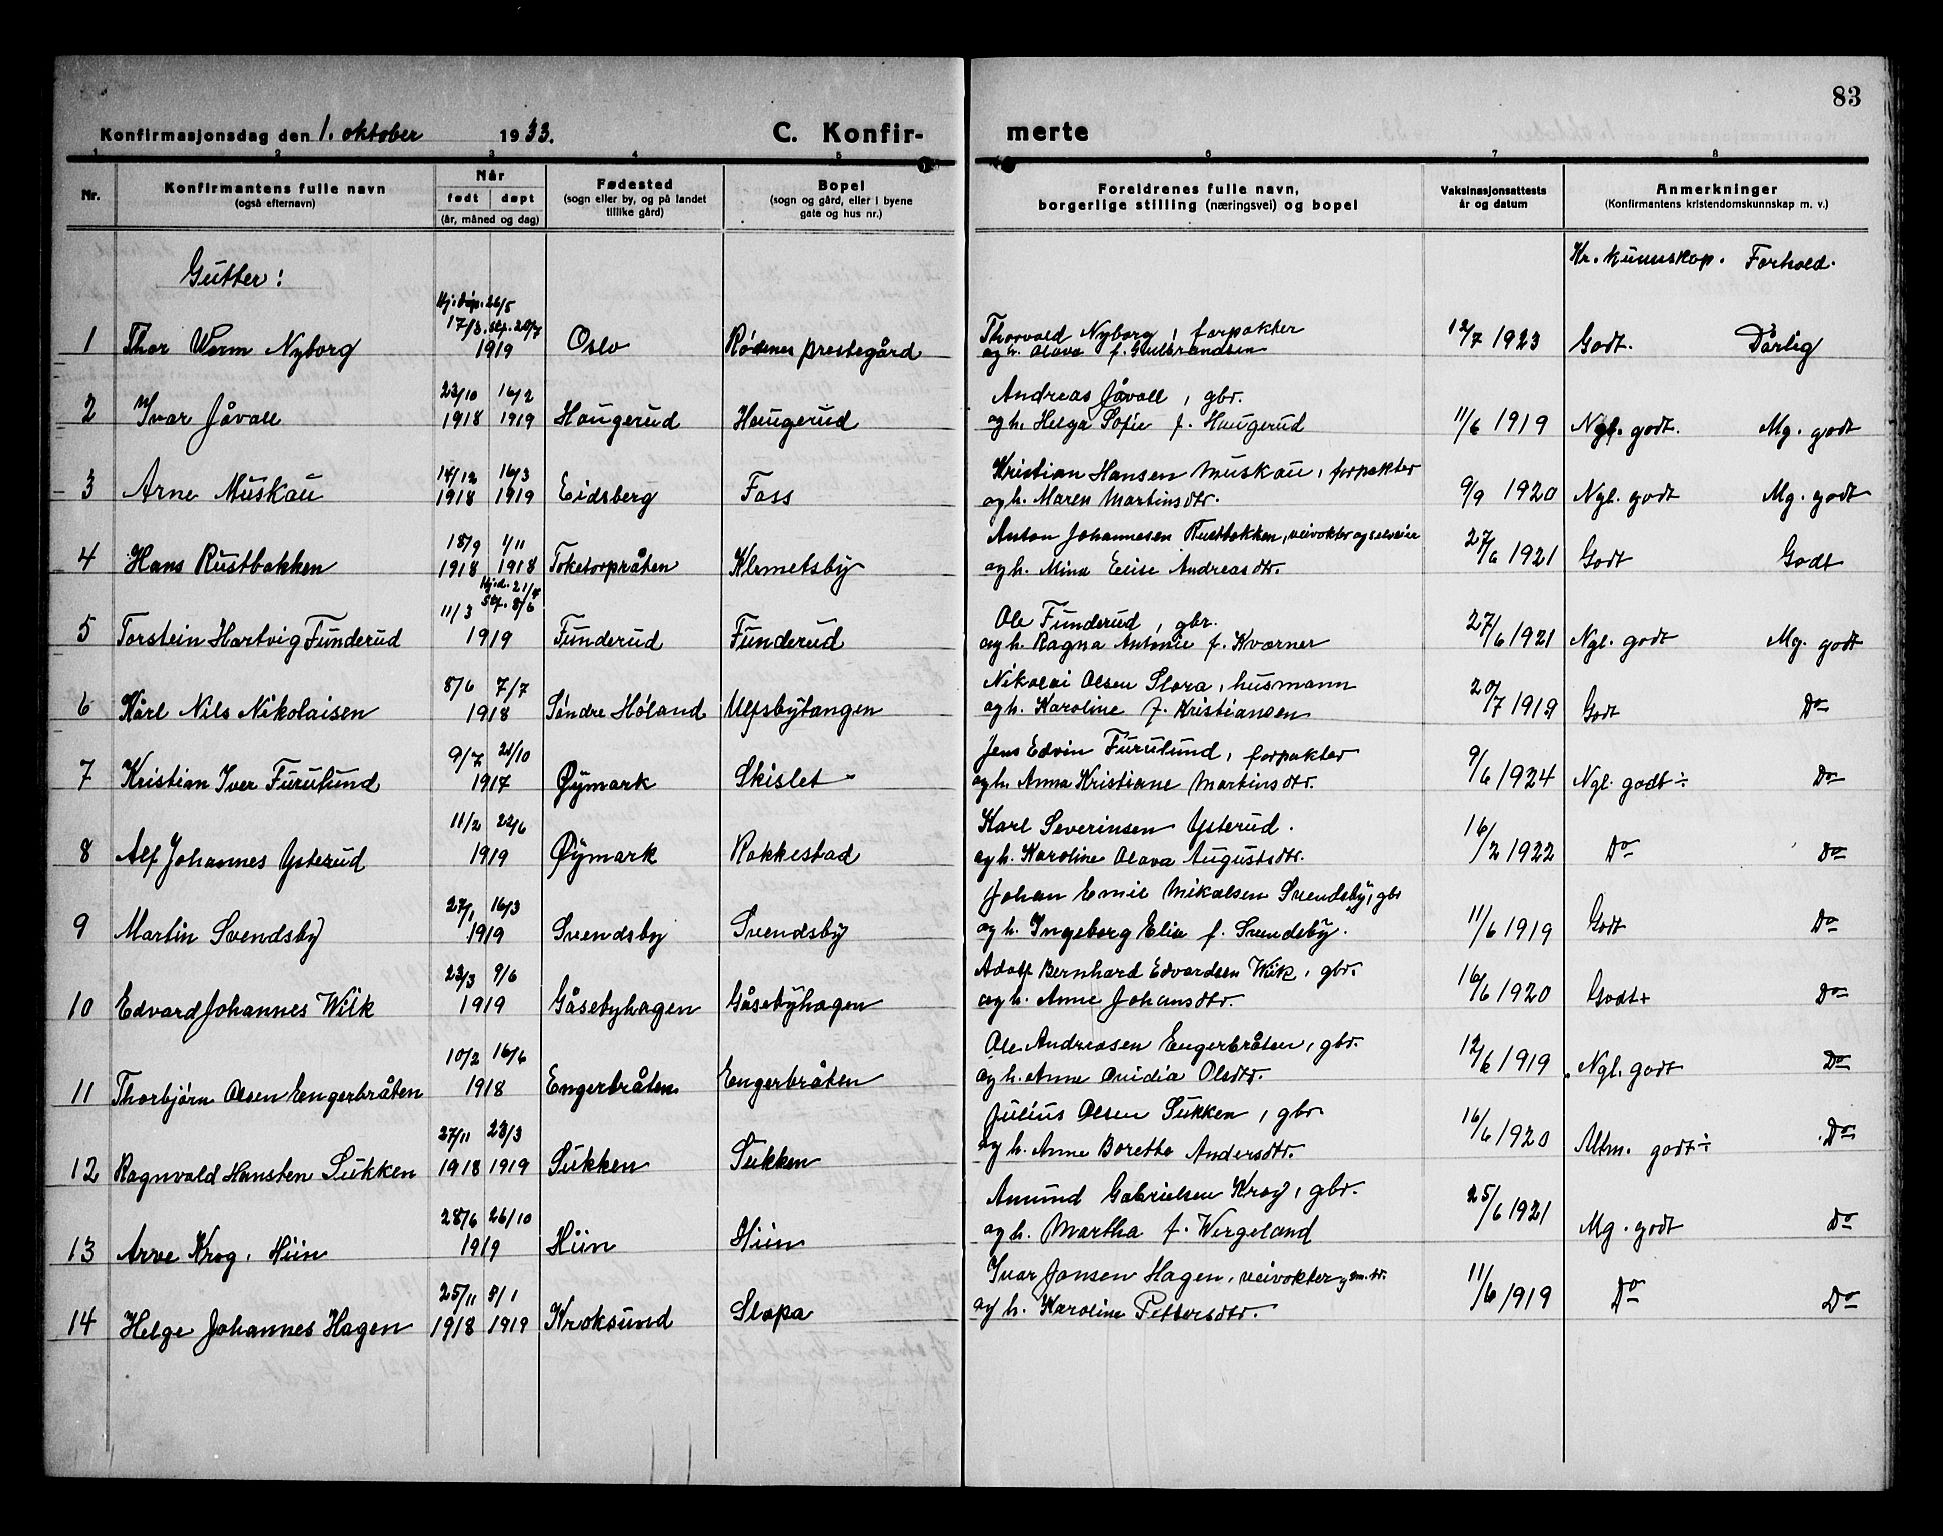 83
Konfirmasjonsdag den 1. oktober 1933. C. Konfir- merte
1 2 3 4 5 6 7 8
Nr. Konfirmantens fulle navn (også efternavn) Når født døpt (år, måned og dag) Fødested (sogn eller by, og på landet tillike gård) Bopel (sogn og gård, eller i byene gate og hus nr.) Foreldrenes fulle navn, borgerlige stilling (næringsvei) og bopel Vaksinasjonsattests år og datum Anmerkninger (Konfirmantens kristendomskunnskap m. v.)
Gutter: Kr. kunnskap. Forhold.
Hj.døp. 26/5
17/3. stf. 20/7 Thorvald Nyborg, forpakter
1 Thor Werm Nyborg 1919 Oslo Rødenes prestegård og h. Olava f. Gulbrandsen 12/7 1923 Godt. Dårlig
23/10 16/2 Andreas Jåvall, gbr.
2 Ivar Jåvall 1918 1919 Haugerud Haugerud og h. Helga Sofie f. Haugerud 11/6 1919 Ngl. godt. Mg. godt
14/12 16/3 Kristian Hansen Muskau, forpakter
3 Arne Muskau 1918 1919 Eidsberg Foss og h. Maren Martinsdtr. 9/9 1920 Ngl. godt Mg. godt
18/9 1/11 Anton Johannesen Rustbakken, veivokter og selveier
4 Hans Rustbakken 1918 1918 Toketorpråten Klemetsby og h. Mina Elise Andreasdtr. 27/6 1921 Godt Godt
Hj.d. 21/4
11/3 Stf. 8/6 Ole Funderud, gbr.
5 Torstein Hartvig Funderud 1919 Funderud Funderud og h. Ragna Antonie f. Kværner 27/6 1921 Ngl. godt Mg. godt
8/6 7/7 Nikolai Olsen Slora, husmann
6 Kårl Nils Nikolaisen 1918 Søndre Høland Ulfsbytangen og h. Karoline f. Kristiansen 20/7 1919 Godt Do
9/7 21/10 Jens Edvin Furulund, forpakter
7 Kristian Iver Furulund 1917 Øymark Skislet og h. Anna Kristiane Martinsdtr. 9/6 1924 Ngl. godt÷ Do
11/2 22/6 Karl Severinsen Ysterud.
8 Alf Johannes Ysterud 1919 Øymark Rakkestad og h. Karoline Olava Augustsdtr. 16/2 1922 Do Do
27/1 16/3 Johan Emil Mikalsen Svendsby, gbr
9 Martin Svendsby 1919 Svendsby Svendsby og h. Ingeborg Elise f. Svendsby. 11/6 1919 Godt Do
23/3 9/6 Adolf Bernhard Edvardsen Wiik, gbr.
10 Edvard Johannes Wiik 1919 Gåsebyhagen Gåsebyhagen og h. Anne Johansdtr. 16/6 1920 Godt+ Do
10/2 16/6 Ole Andreasen Engerbråten, gbr.
11 Thorbjørn Olsen Engerbråten 1918 Engerbråten Engerbråten og h. Anne Ovidia Olsdtr. 12/6 1919 Ngl. godt Do
27/11 23/3 Julius Olsen Sukken, gbr.
12 Ragnvald Hansten Sukken 1918 1919 Sukken Sukken og h. Anne Borette Andersdtr. 16/6 1920 Altm. godt÷ Do
28/6 26/10 Amund Gabrielsen Krog, gbr.
13 Arve Krog, Hiin 1919 Hiin Hiin og h. Martha f. Wergeland 25/6 1921 Mg. godt Do
25/11 8/1 Ivar Jonsen Hagen, veivokter
14 Helge Johannes Hagen 1918 1919 Kroksund Slopa og h. Karoline Pettersdtr. 11/6 1919 Do Do